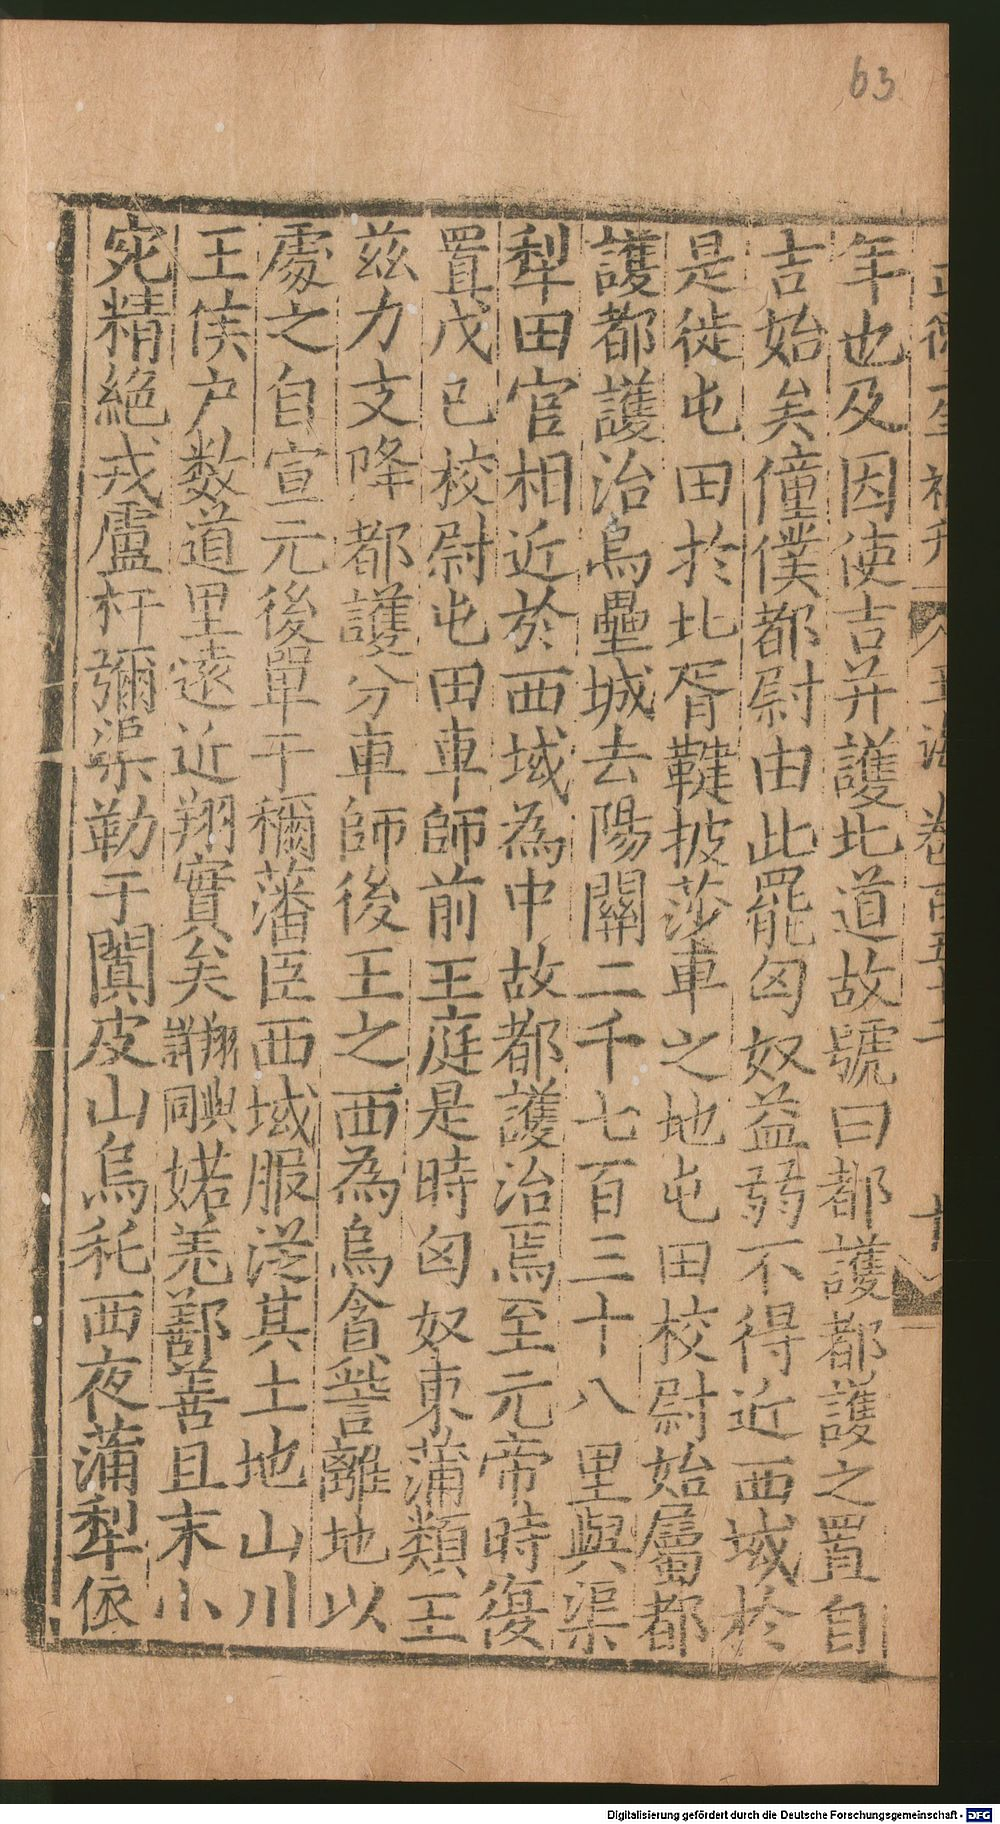 63
年也及因使吉并護北道故號曰都護都護之置自
吉始矣僮僕都尉由此罷匈奴益弱不得近西域於
是徙屯田於北胥鞬披莎車之地屯田校尉始屬都
護都護治烏壘城去陽關二千七百三十八里與渠
犁田官相近於西域為中故都護治焉至元帝時復
置戊己校尉屯田車師前王庭是時匈奴東蒲類王
茲力支降都護分車師後王之西為烏貪訾離地以
處之自宣元後單于稱藩臣西域服從其土地山川
王侯户数道里遠近翔實矣翔與詳同婼羌鄯善且末小
宛精絕戎盧杆彌渠勒于闐皮山烏秅西夜蒲犁依
Digitalisierung gefördert durch die Deutsche Forschungsgemeinschaft - DFG